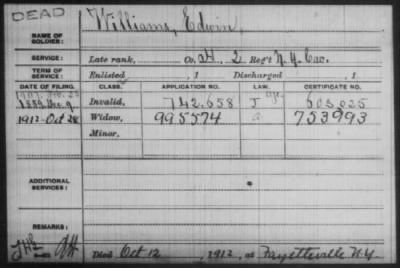 DEAD
NAME OF SOLDIER: Williams, Edwin,
SERVICE: Late rank, Co. H, 2 Reg't N.Y. Cav.
TERM OF SERVICE: Enlisted , 1 Discharged , 1
DATE OF FILING. CLASS. APPLICATION NO. LAW. CERTIFICATE NO.
1889 Dec. 9 Invalid, 742.658 J 603,025
1912 Oct 28 Widow, 995574 a 753993
Minor.
ADDITIONAL SERVICES:
REMARKS:
Died Oct 12, 1912, at Fayetteville N.Y.